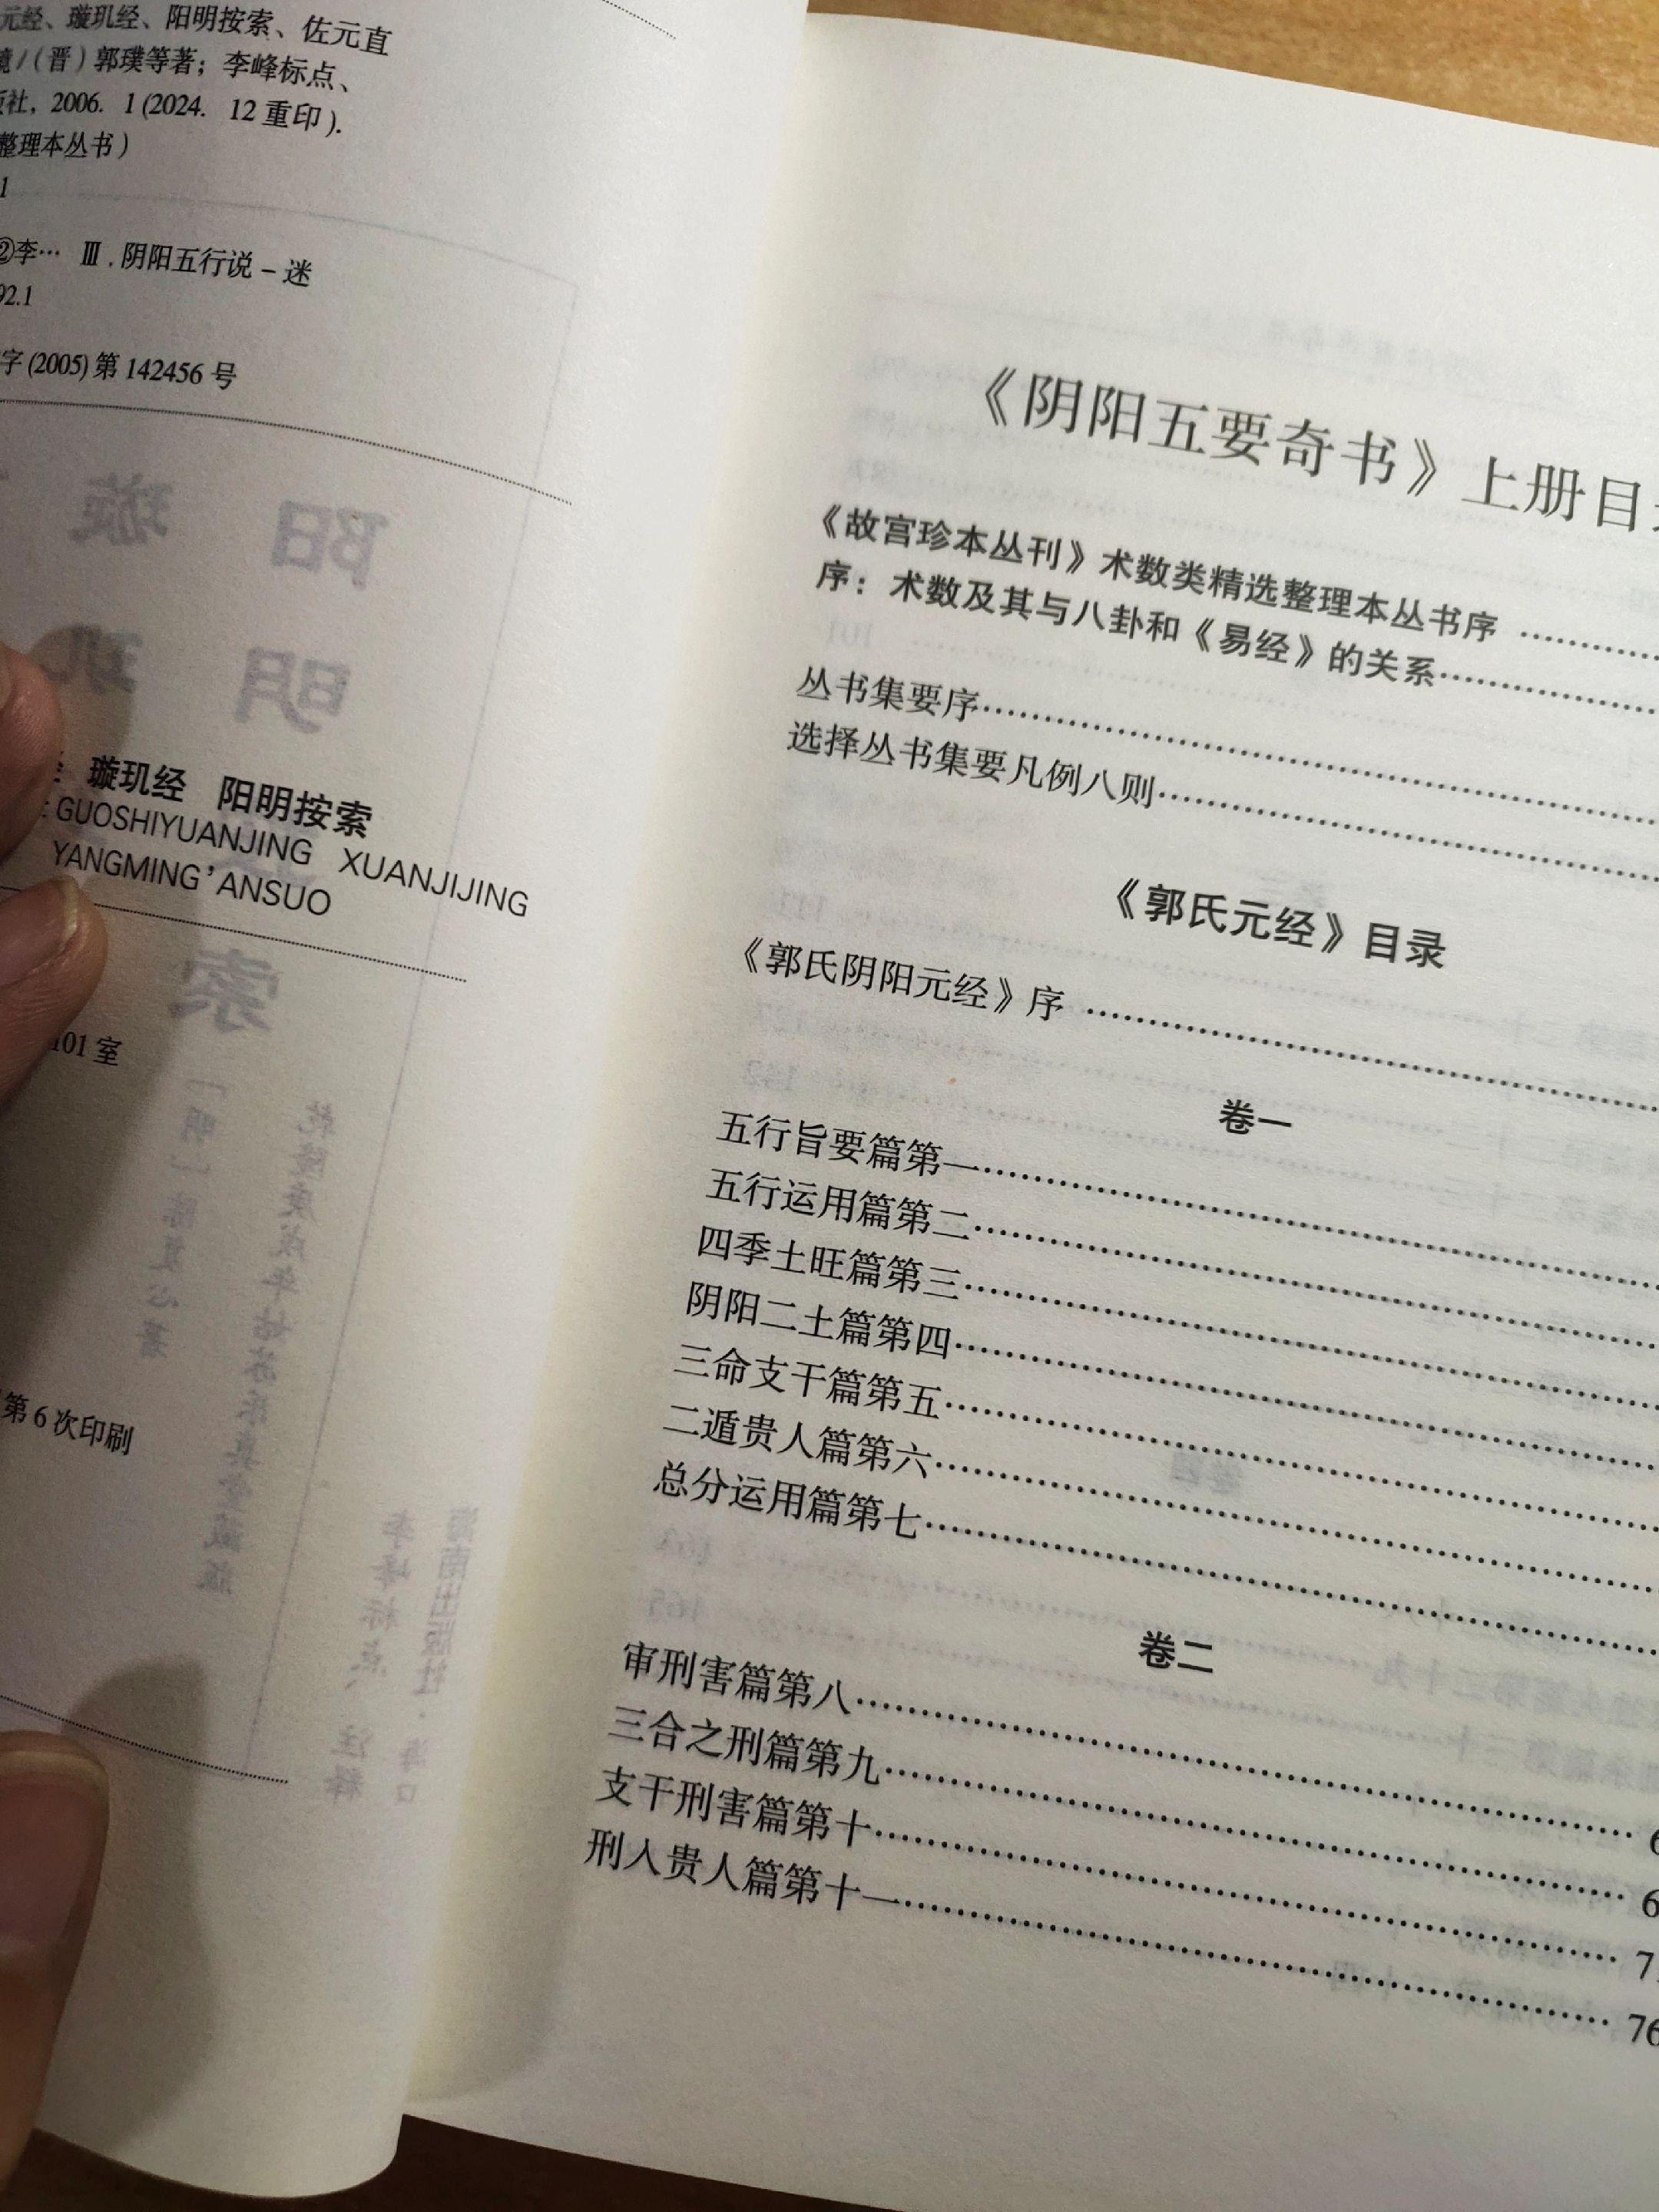 元经、璇玑经、阳明按索、佐元直
镜/（晋）郭璞等著；李峰标点、
版社，2006. 1 (2024. 12 重印).
整理本丛书）
1
②李… Ⅲ. 阴阳五行说－迷
92.1
字 (2005) 第 142456 号
璇玑经 阳明按索
GUOSHIYUANJING XUANJIJING
YANGMING'ANSUO
101 室
第 6 次印刷
《阴阳五要奇书》上册目
《故宫珍本丛刊》术数类精选整理本丛书序
序：术数及其与八卦和《易经》的关系
丛书集要序
选择丛书集要凡例八则
《郭氏元经》目录
《郭氏阴阳元经》序
卷一
五行旨要篇第一
五行运用篇第二
四季土旺篇第三
阴阳二土篇第四
三命支干篇第五
二遁贵人篇第六
总分运用篇第七
卷二
审刑害篇第八 6
三合之刑篇第九 6
支干刑害篇第十 7
刑人贵人篇第十一 76